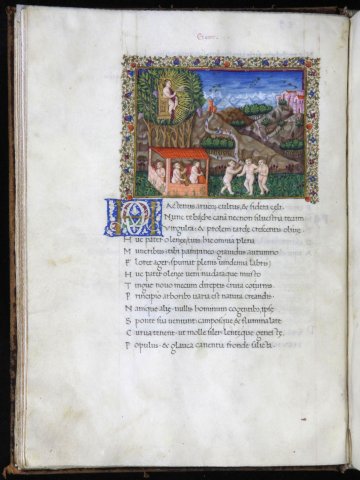 H actenus aruorũ cultus, & sidera cęli
Nunc te bache canã necnon siluestria tecum
Virgulta: & prolem tarde crescentis oliuę
H uc pater o lenęe, tuis hic omnia plena
M uneribus: tibi pampineo grauidus autumno
F loret ager: spumat plenis uindemia labris:
H uc pater o lenęe ueni nudataque musto
T ingue nouo mecum direptis crura coturnis
P rincipio arboribus uaria est natura creandis.
N amque alię nullis hominum cogentibus, ipsę
S ponte sua ueniunt: camposque & flumina late
C urua tenent: ut molle siler: lentęque genestę.
P opulus: & glauca canentia fronde salicta